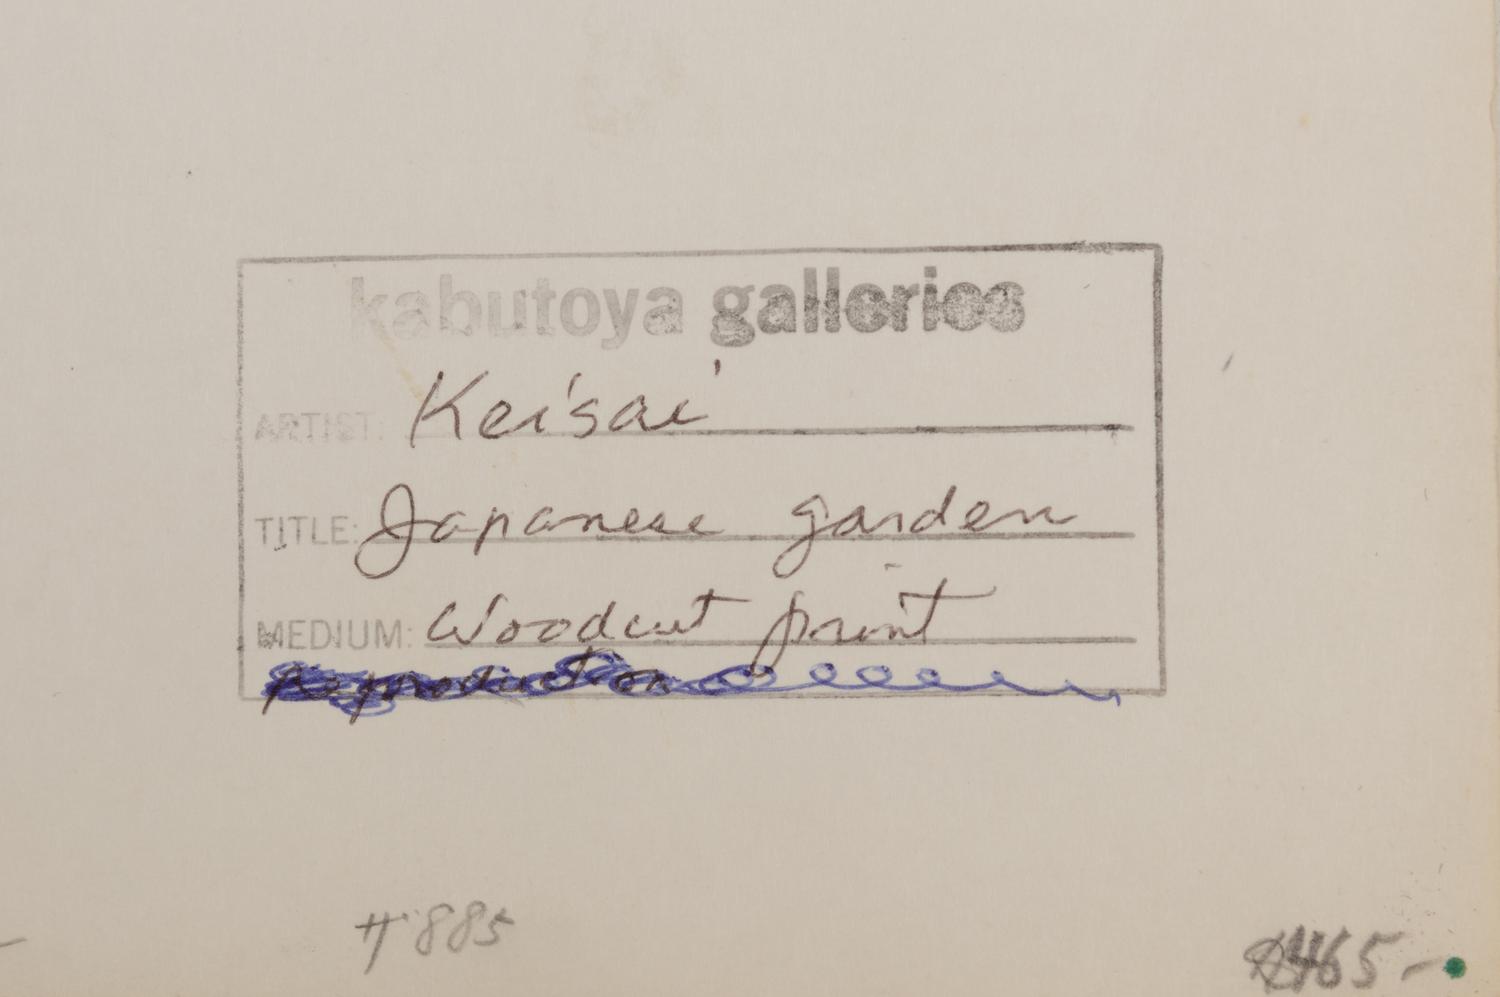 kabutoya galleries
ARTIST: Keisai
TITLE: Japanese garden
MEDIUM: Woodcut print
Reproduction
# 885